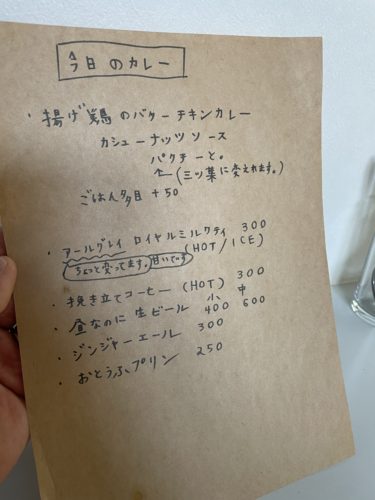 今日のカレー
・揚げ鶏のバターチキンカレー
カシューナッツソース
パクチーと。
↑(三ツ葉に変えれます。)
ごはん多目 +50
・アールグレイ ロイヤルミルクティ 300
ちょっと変ってます。甘いです (HOT/ICE)
・挽き立てコーヒー (HOT) 300
小 中
・昼なのに生ビール 400 600
・ジンジャーエール 300
・おとうふプリン 250